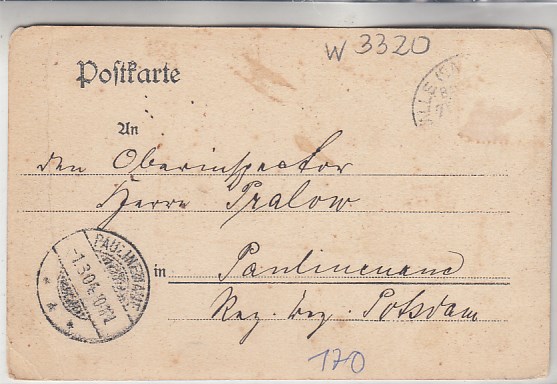 W 3320
Postkarte
An
den Oberinspector
Herrn Pralow
in Paulinenaue
Reg. Bez. Potsdam
PAULINENAUE
1.3.04.
170